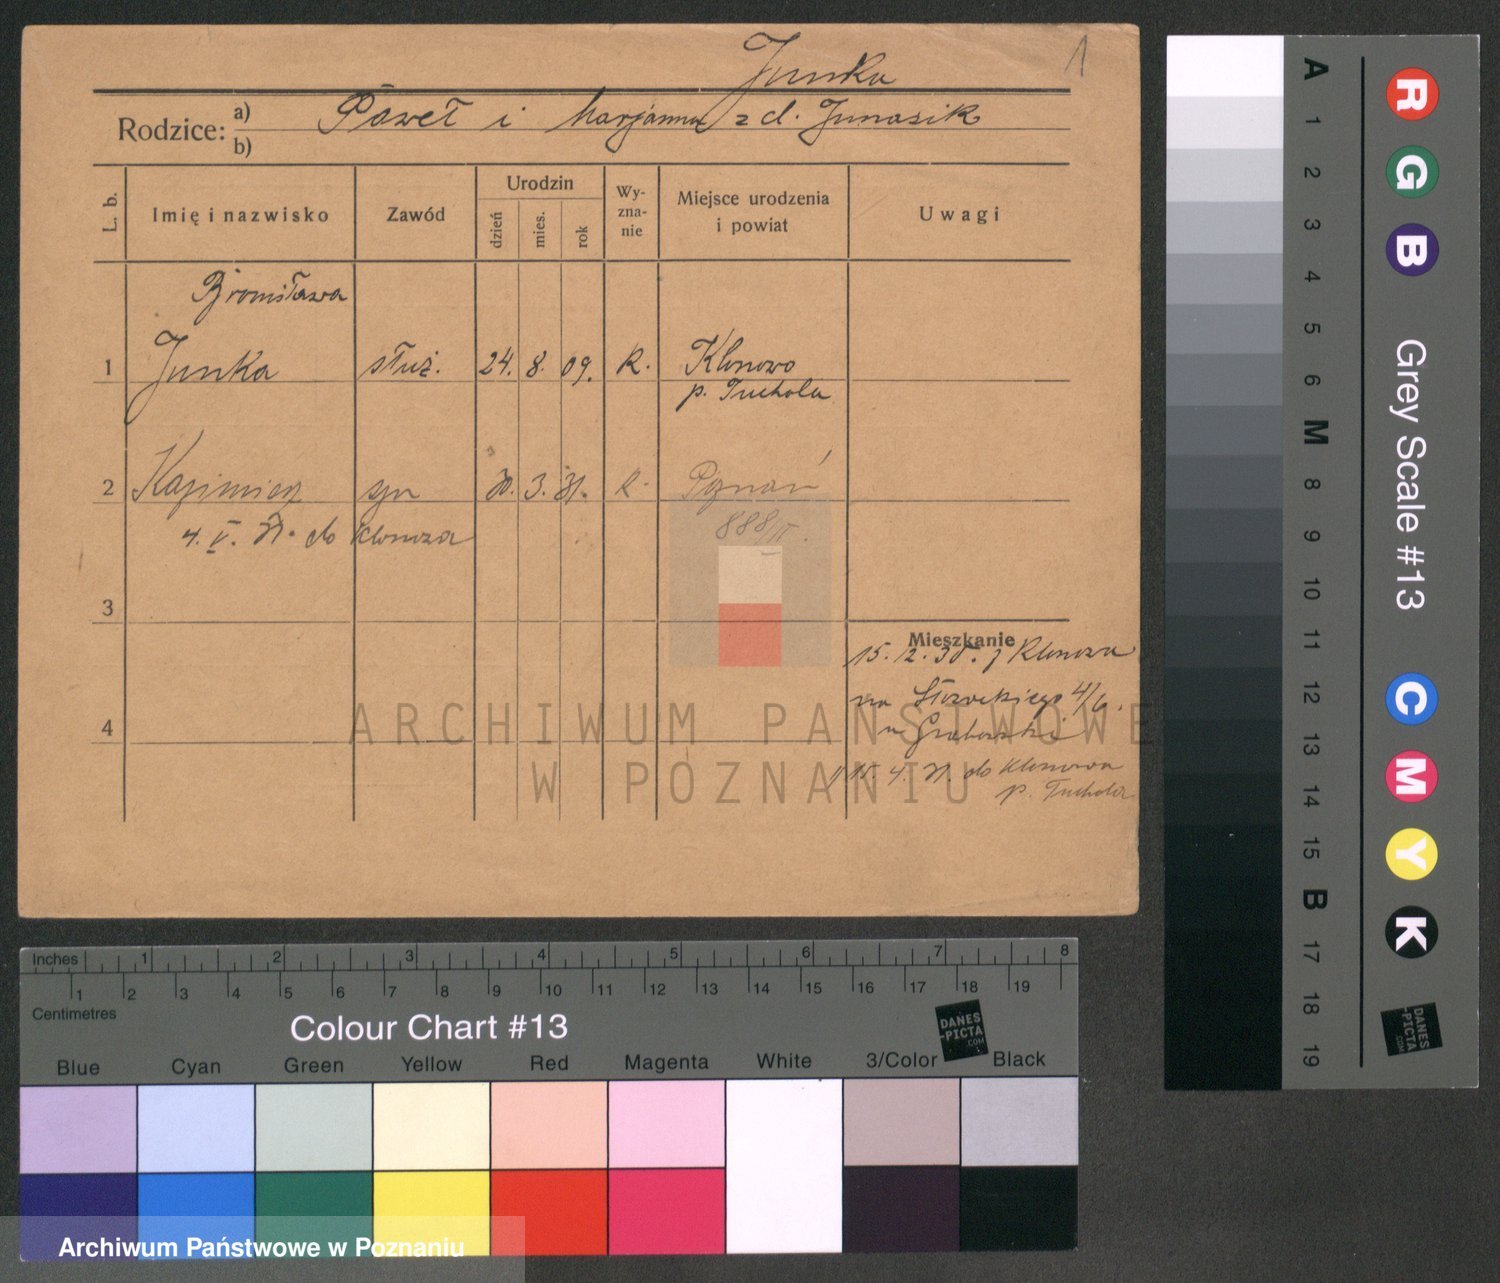 Junka 1
Rodzice: a) Paweł i Marjanna z d. Junasik
b)
L. b. Imię i nazwisko Zawód Urodzin dzień mies. rok Wy-zna-nie Miejsce urodzenia i powiat Uwagi
Bronisława
1 Junka służ. 24. 8. 09. R. Klonowo
p. Tuchola
2 Kazimierz syn 30. 3. 31. R. Poznań
4. V. 31. do Klonowa 888/II.
3
Mieszkanie
15. 12. 30. z Klonowa
na Słowackiego 4/6.
u Grabowski
4
15. 4. 31. do Klonowa
p. Tuchola
ARCHIWUM PAŃSTWOWE
W POZNANIU
A 1 2 3 4 5 6 M 8 9 10 11 12 13 14 15 B 17 18 19
R G B
Grey Scale #13
C M Y K
DANES
-PICTA
.COM
Inches 1 2 3 4 5 6 7 8
1 2 3 4 5 6 7 8 9 10 11 12 13 14 15 16 17 18 19
Centimetres
Colour Chart #13
DANES
-PICTA
.COM
Blue Cyan Green Yellow Red Magenta White 3/Color Black
Archiwum Państwowe w Poznaniu